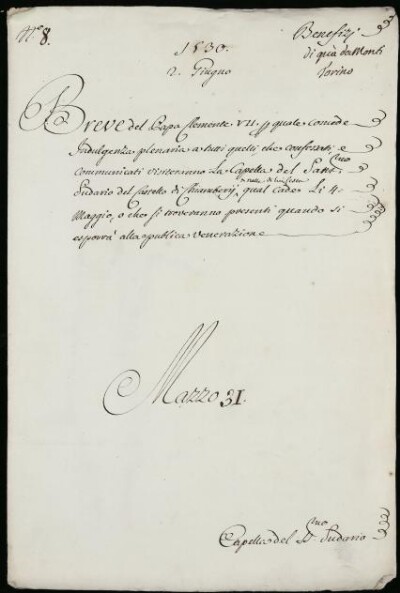 N.º 8.
Benefizj
di quà da Monti
Torino
1530.
2. Giugno
Breve del Papa Clemente VII. pl quale concede
Indulgenza plenaria a tutti quelli che confessati, e
communicati visiteranno La Capella del Sant.mo
Sudario del Castello di Chiamberj nel di lui festa qual cade Li 4
Maggio, o che si troveranno presenti quando si
esporrà alla publica venerazione
Mazzo 31.
Capella del S.mo Sudario